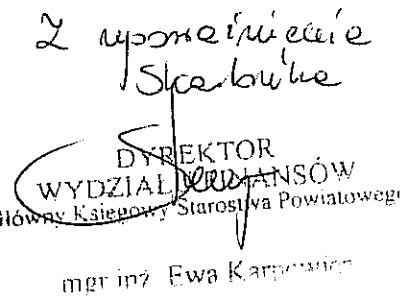 Z upoważnienia
Skarbnika
DYREKTOR
WYDZIAŁ FINANSÓW
Główny Księgowy Starostwa Powiatowego
mgr inż. Ewa Karpowicz